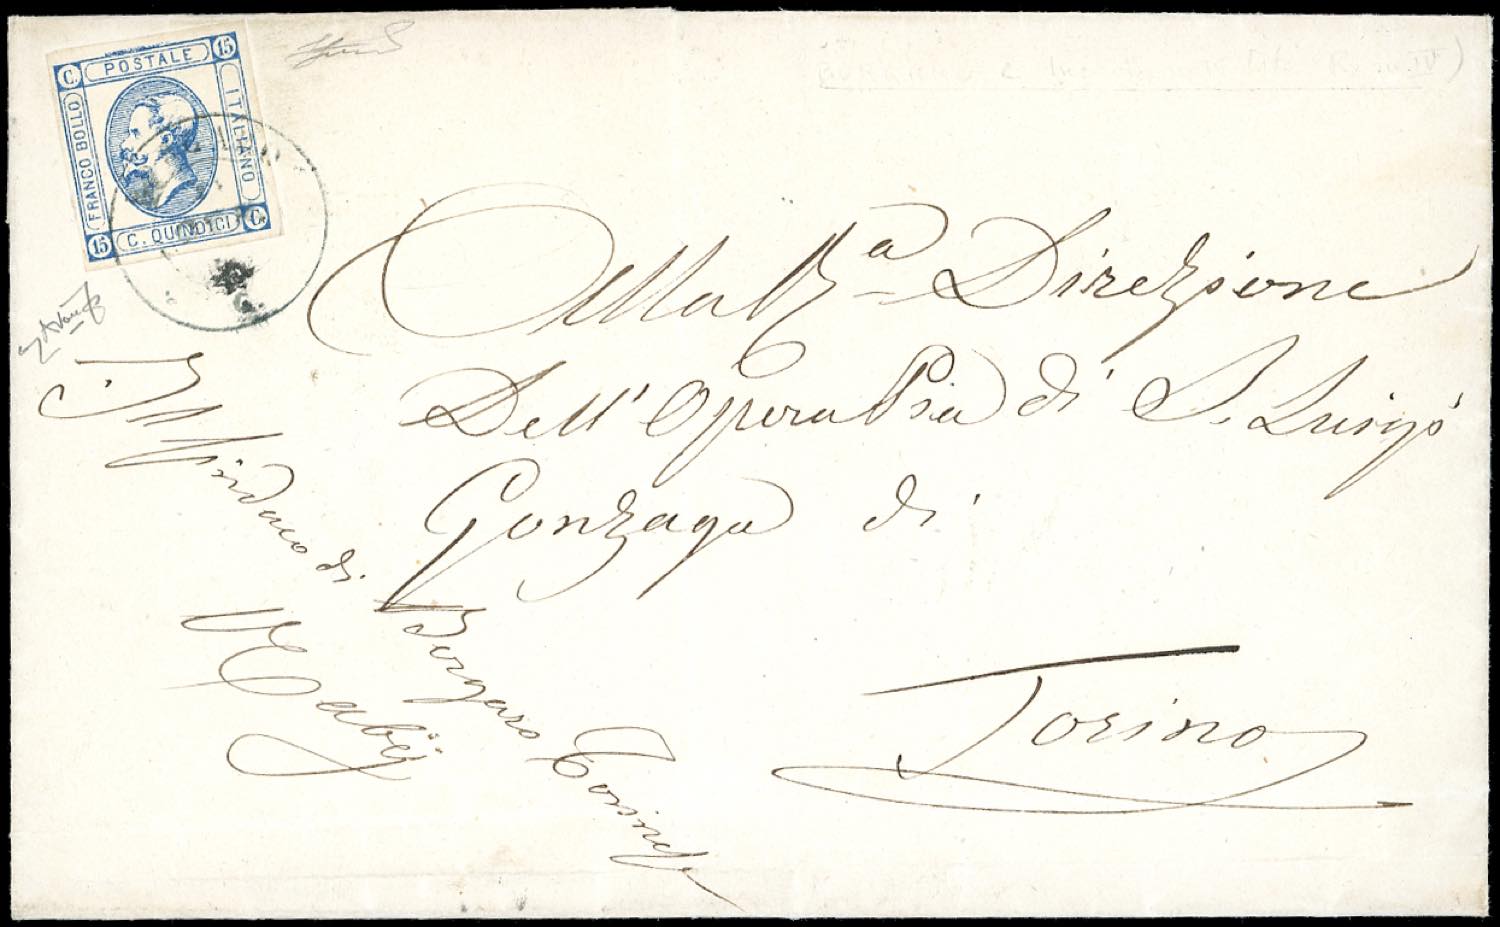 C. POSTALE 15
FRANCO BOLLO
ITALIANO
15 C. QUINDICI C.
Alla V.ª Direzione
Dell' Opera Pia di S. Luigi
Gonzaga di
Torino
Il Sindaco di Borgaro Torinese
Cabei